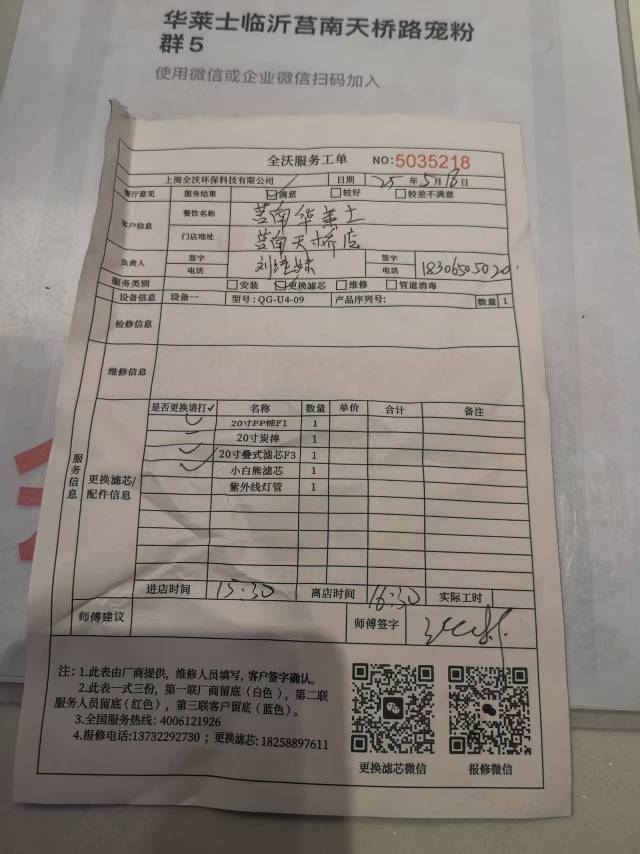 华莱士临沂莒南天桥路宠粉
群 5
使用微信或企业微信扫码加入
全沃服务工单 NO:5035218
上海全沃环保科技有限公司 日期 25年5月18日
餐厅意见 服务结果 满意 较好 较差不满意
客户信息 餐饮名称 莒南华莱士
门店地址 莒南天桥店
负责人 签字 电话 签字 电话
服务类别 安装 更换滤芯 维修 管道消毒
设备信息 设备一 型号:QG-U4-09 产品序列号: 数量 1
检修信息
维修信息
服务信息
更换滤芯/配件信息
是否更换请打✓ 名称 数量 单价 合计 备注
20寸PP棉F1 1
20寸炭棒 1
20寸叠式滤芯F3 1
小白熊滤芯 1
紫外线灯管 1
进店时间 15:30 离店时间 16:30 实际工时
师傅建议 师傅签字
注:1.此表由厂商提供,维修人员填写,客户签字确认。
2.此表一式三份,第一联厂商留底(白色),第二联
服务人员留底(红色),第三联客户留底(蓝色)。
3.全国服务热线:4006121926
4.报修电话:13732292730;更换滤芯:18258897611
更换滤芯微信 报修微信